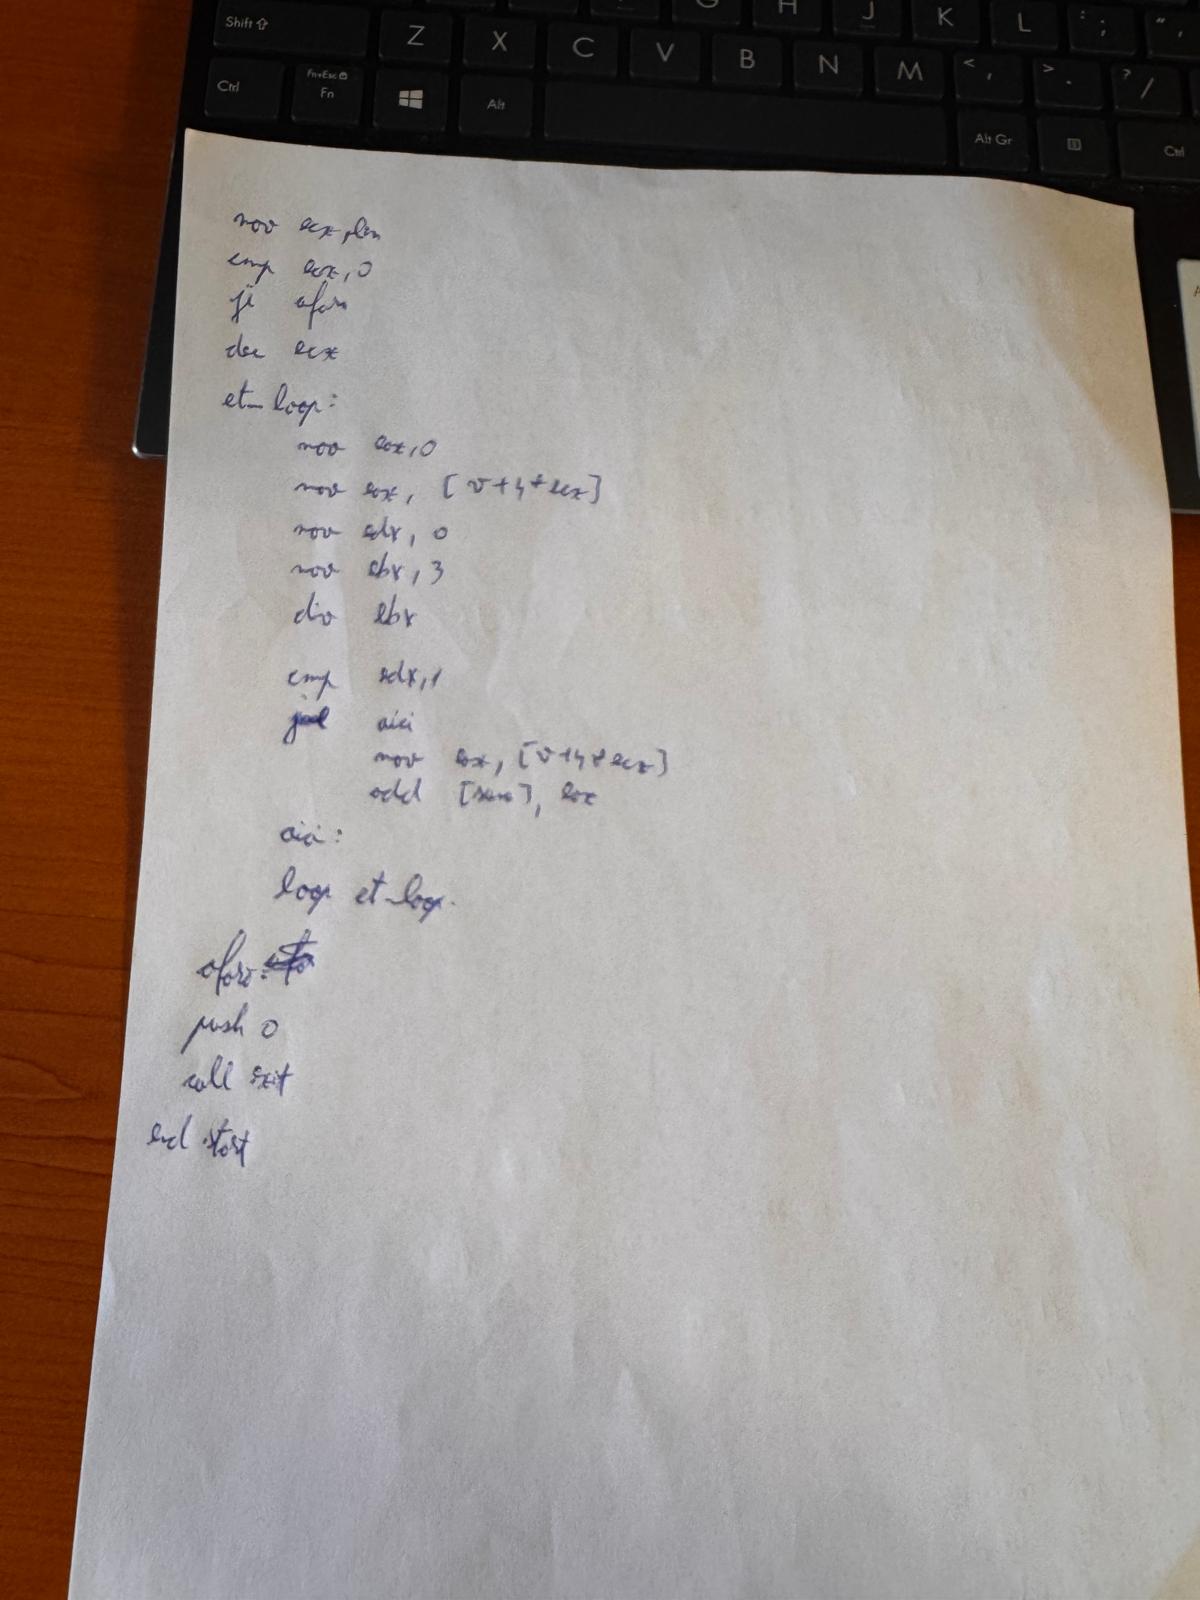 Shift
Z X C V B N M < , > . ? /
Ctrl Fn Alt Alt Gr Ctrl
mov ecx, len
cmp ecx, 0
je afara
dec ecx
et_loop:
mov eax, 0
mov eax, [v+4*ecx]
mov edx, 0
mov ebx, 3
div ebx
cmp edx, 1
aici
mov eax, [v+4*ecx]
add [sum], eax
aici:
loop et_loop
afara:
push 0
call exit
end start